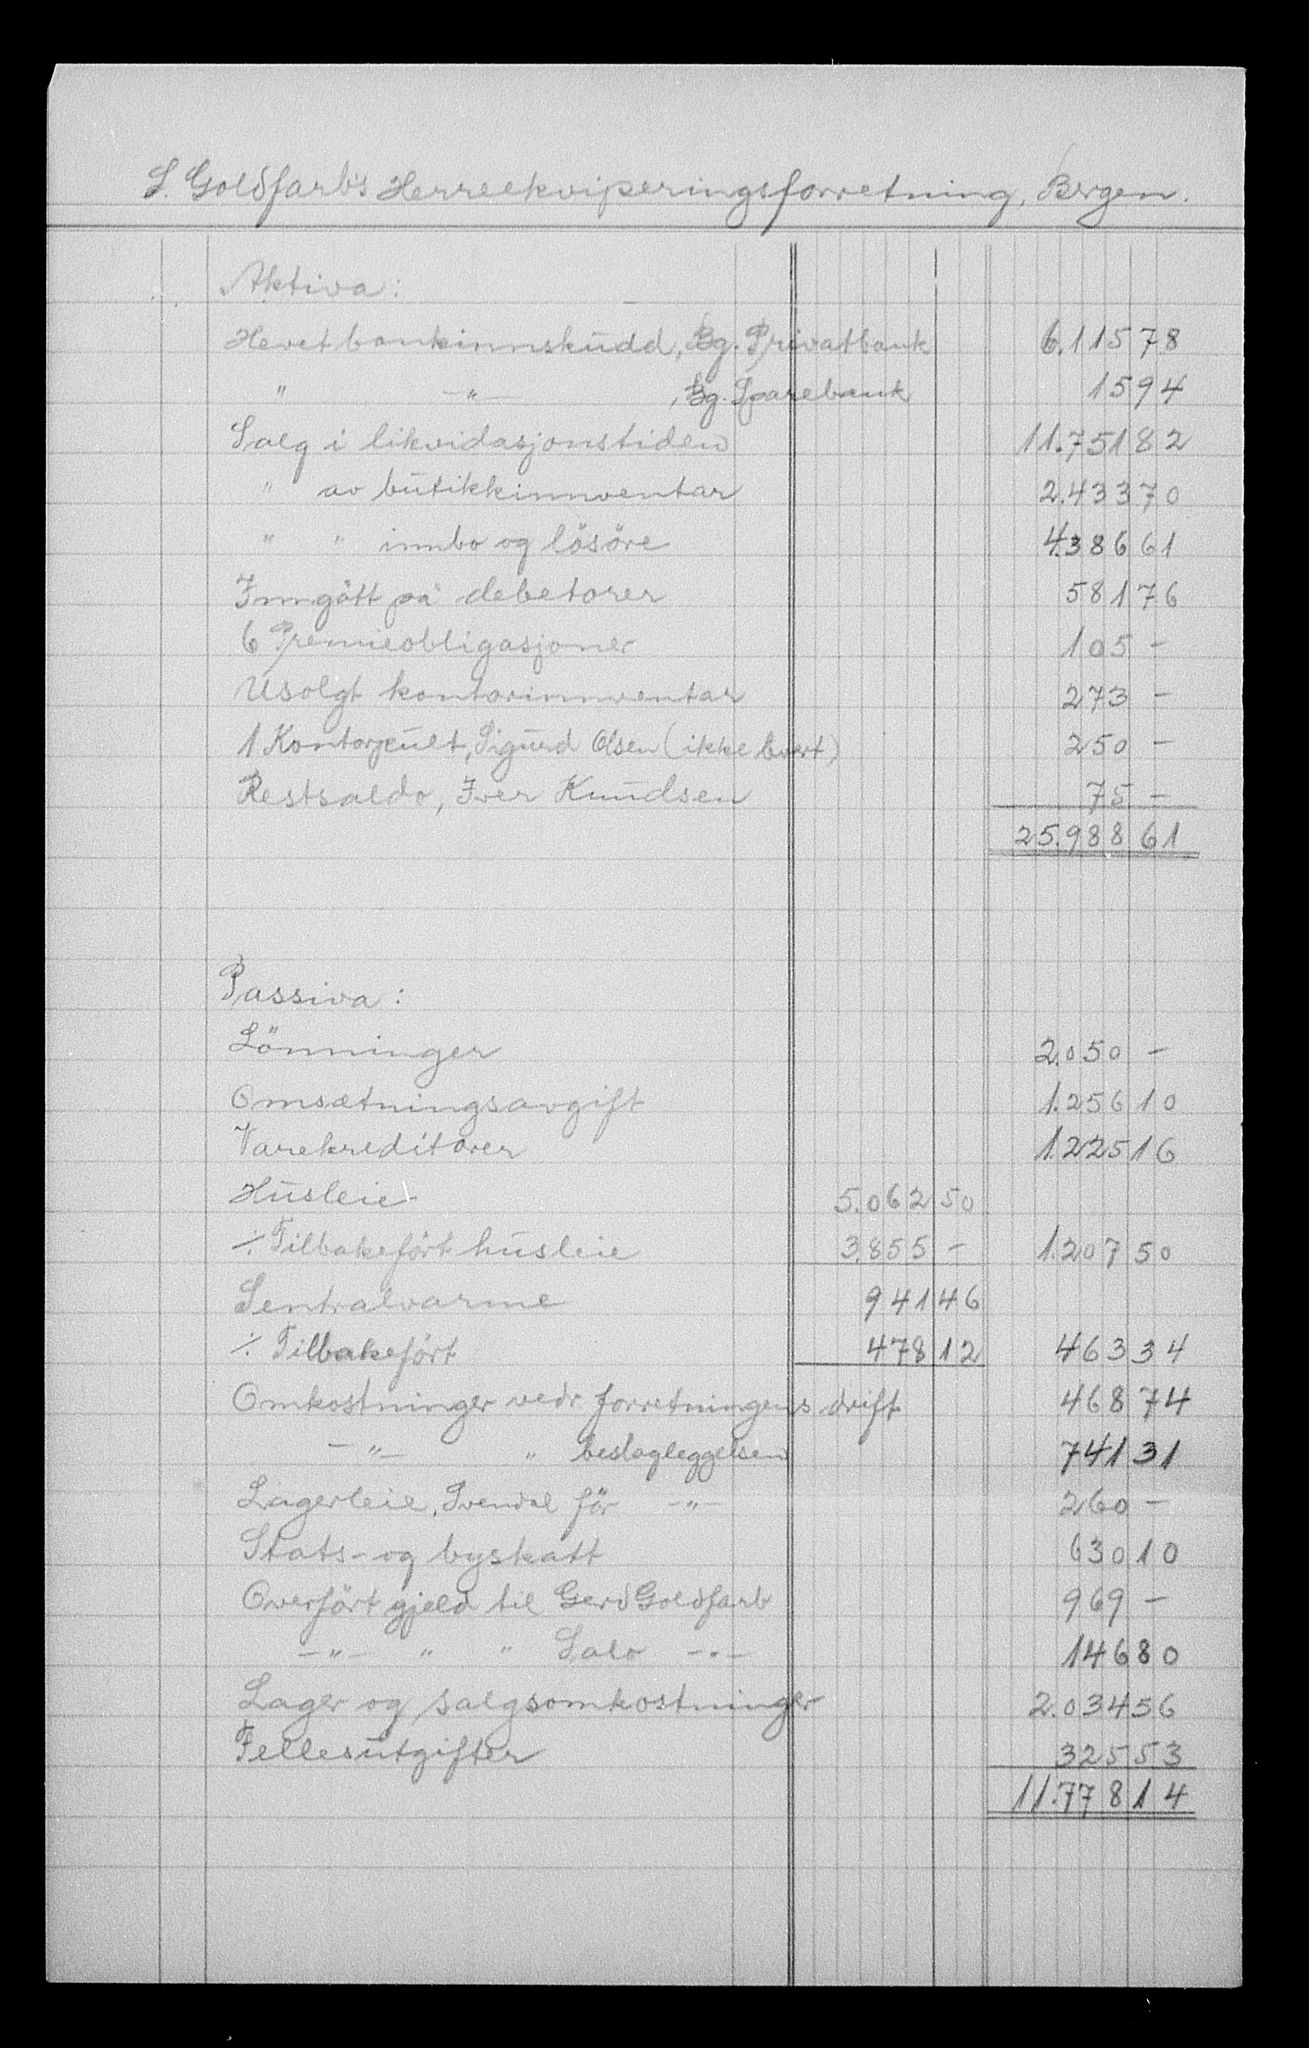 S. Goldfarb's Herreekviperingsforretning, Bergen.
Aktiva:
Hevet bankinnskudd, Bg. Privatbank 6.115 78
" —"— , Bg. Sparebank 15 94
Salg i likvidasjonstiden 11.751 82
" av butikkinnventar 2.433 70
" " innbo og lösöre 4.386 61
Inngått på debetorer 581 76
6 Premieobligasjoner 105 —
Usolgt kontorinnventar 273 —
1 Kontorpult, Sigurd Olsen (ikke levert) 250 —
Restsaldo, Iver Knudsen 75 —
25.988 61
Passiva:
Lönninger 2.050 —
Omsetningsavgift 1.256 10
Varekreditorer 1.225 16
Husleie 5.062 50
·/. Tilbakefört husleie 3.855 — 1.207 50
Sentralvarme 941 46
·/. Tilbakefört 478 12 463 34
Omkostninger vedr. forretningens drift 468 74
—"— " beslagleggelsen 741 31
Lagerleie, Svendal för —"— 260 —
Stats- og byskatt 630 10
Overfört gjeld til Gerd Goldfarb 969 —
—"— " " Salo —"— 146 80
Lager og salgsomkostninger 2.034 56
Fellesutgifter 325 53
11.778 14